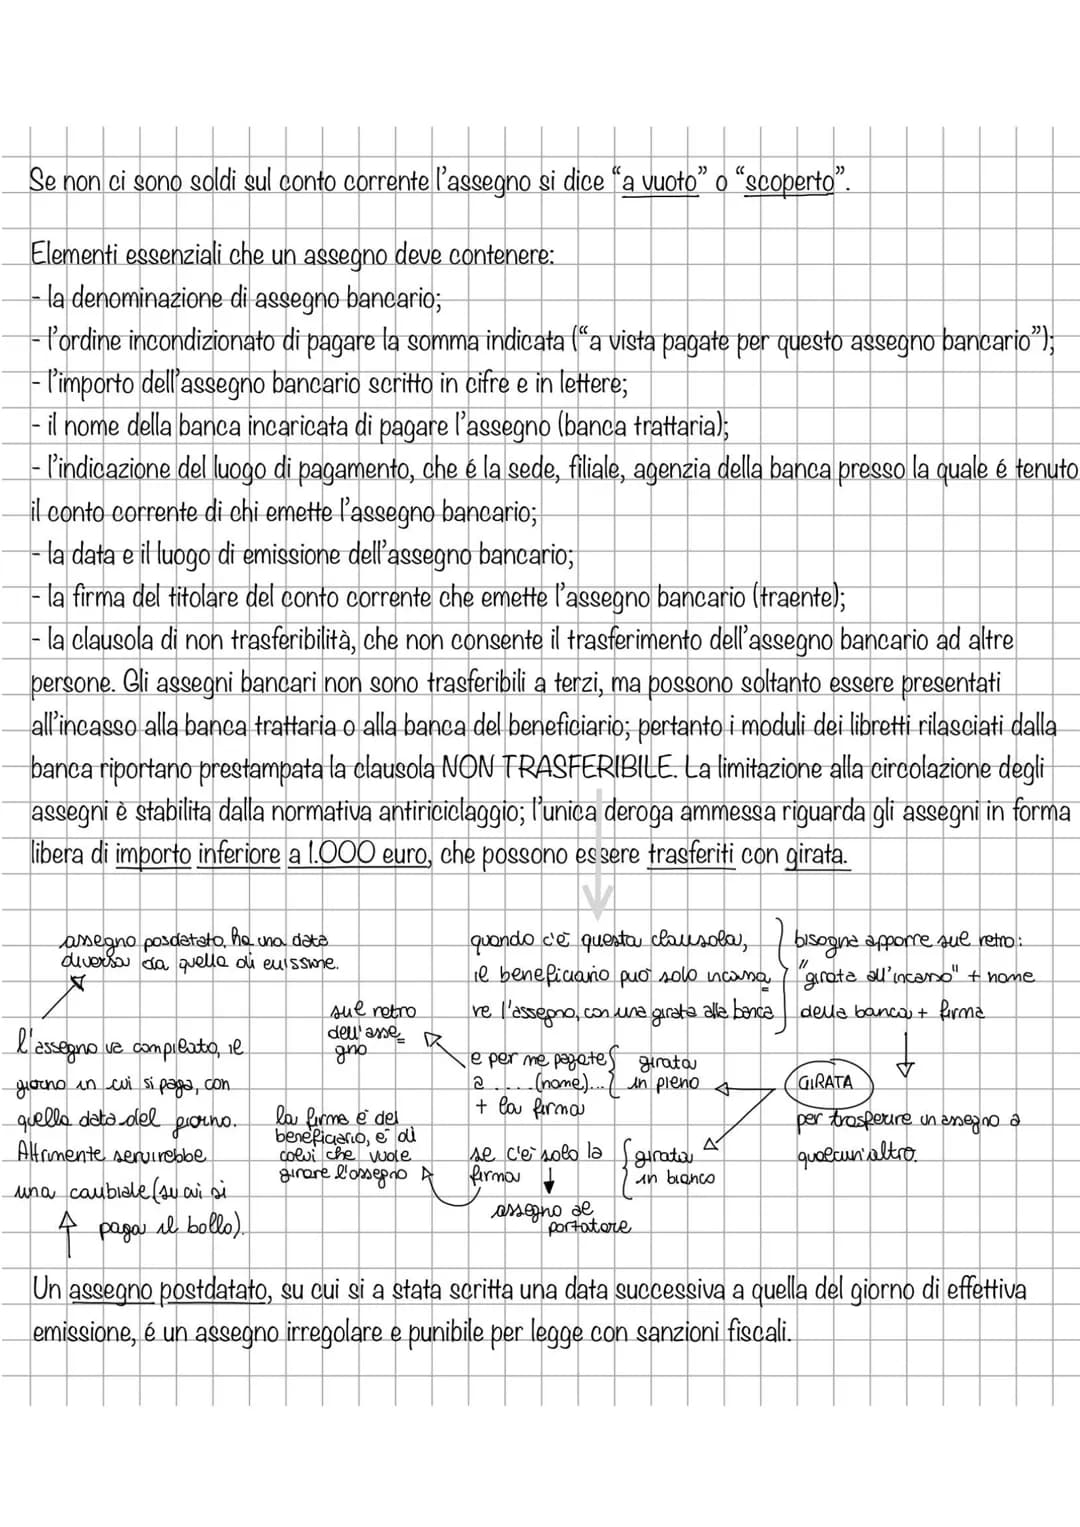 Se non ci sono soldi sul conto corrente l'assegno si dice “a vuoto” o “scoperto”.
Elementi essenziali che un assegno deve contenere:
- la denominazione di assegno bancario;
- l'ordine incondizionato di pagare la somma indicata (“a vista pagate per questo assegno bancario”);
- l'importo dell'assegno bancario scritto in cifre e in lettere;
- il nome della banca incaricata di pagare l'assegno (banca trattaria);
- l'indicazione del luogo di pagamento, che é la sede, filiale, agenzia della banca presso la quale é tenuto
il conto corrente di chi emette l'assegno bancario;
- la data e il luogo di emissione dell'assegno bancario;
- la firma del titolare del conto corrente che emette l'assegno bancario (traente);
- la clausola di non trasferibilità, che non consente il trasferimento dell'assegno bancario ad altre
persone. Gli assegni bancari non sono trasferibili a terzi, ma possono soltanto essere presentati
all'incasso alla banca trattaria o alla banca del beneficiario; pertanto i moduli dei libretti rilasciati dalla
banca riportano prestampata la clausola NON TRASFERIBILE. La limitazione alla circolazione degli
assegni è stabilita dalla normativa antiriciclaggio; l'unica deroga ammessa riguarda gli assegni in forma
libera di importo inferiore a 1.000 euro, che possono essere trasferiti con girata.
assegno posdatato, ha una data
diversa da quella di emissione.
l'assegno va compilato, il
giorno in cui si paga, con
quella data del giorno.
Altrimente servirebbe
una cambiale (su cui si
paga il bollo).
sul retro
dell'asse
gno
la firma è del
beneficiario, e di
colui che vuole
girare l'assegno
quando c'è questa clausola,
il beneficiario può solo incassa
re l'assegno, con una girata alla banca
bisogna apporre sul retro:
"girata all'incasso" + nome
della banca + firma
e per me pagate
a ....(nome)...
+ la firma
girata
in pieno
GIRATA
per trasferire un assegno a
qualcun'altro.
se c'è solo la
firma
girata
in bianco
assegno al
portatore
Un assegno postdatato, su cui si a stata scritta una data successiva a quella del giorno di effettiva
emissione, é un assegno irregolare e punibile per legge con sanzioni fiscali.